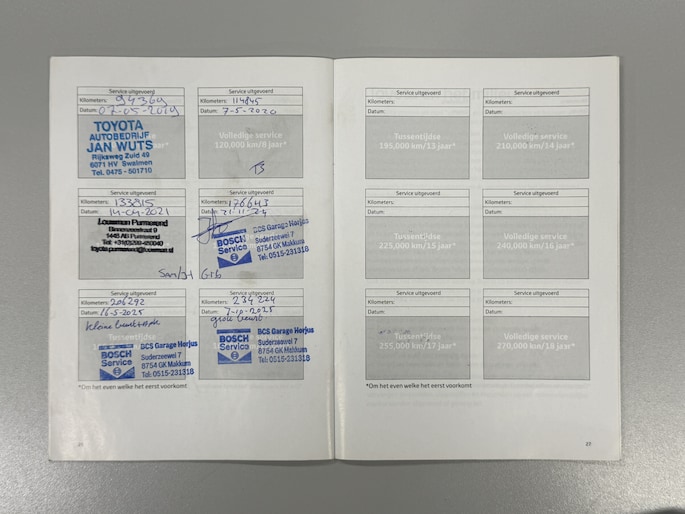 Service uitgevoerd
Kilometers: 94369
Datum: 07-05-2019
TOYOTA
AUTOBEDRIJF
JAN WUTS
Rijksweg Zuid 49
6071 HV Swalmen
Tel. 0475 - 501710
Service uitgevoerd
Kilometers: 114845
Datum: 7-5-2020
Volledige service
120,000 km/8 jaar*
Service uitgevoerd
Kilometers: 133815
Datum: 14-04-2021
Louwman Purmerend
1446 AB Purmerend
Service uitgevoerd
Kilometers: 176643
Datum: 21-11-24
BOSCH
Service
BCS Garage Horjus
Suderzeewei 7
8754 GK Makkum
Tel: 0515-231318
Service uitgevoerd
Kilometers: 206292
Datum: 16-5-2025
kleine
BOSCH
Service
BCS Garage Horjus
Suderzeewei 7
8754 GK Makkum
Tel: 0515-231318
Service uitgevoerd
Kilometers: 234224
Datum: 7-10-2025
grote beurt
BOSCH
Service
BCS Garage Horjus
Suderzeewei 7
8754 GK Makkum
Tel: 0515-231318
*Om het even welke het eerst voorkomt
Service uitgevoerd
Kilometers:
Datum:
Tussentijdse
195,000 km/13 jaar*
Service uitgevoerd
Kilometers:
Datum:
Volledige service
210,000 km/14 jaar*
Service uitgevoerd
Kilometers:
Datum:
Tussentijdse
225,000 km/15 jaar*
Service uitgevoerd
Kilometers:
Datum:
Volledige service
240,000 km/16 jaar*
Service uitgevoerd
Kilometers:
Datum:
Tussentijdse
255,000 km/17 jaar*
Service uitgevoerd
Kilometers:
Datum:
Volledige service
270,000 km/18 jaar*
*Om het even welke het eerst voorkomt